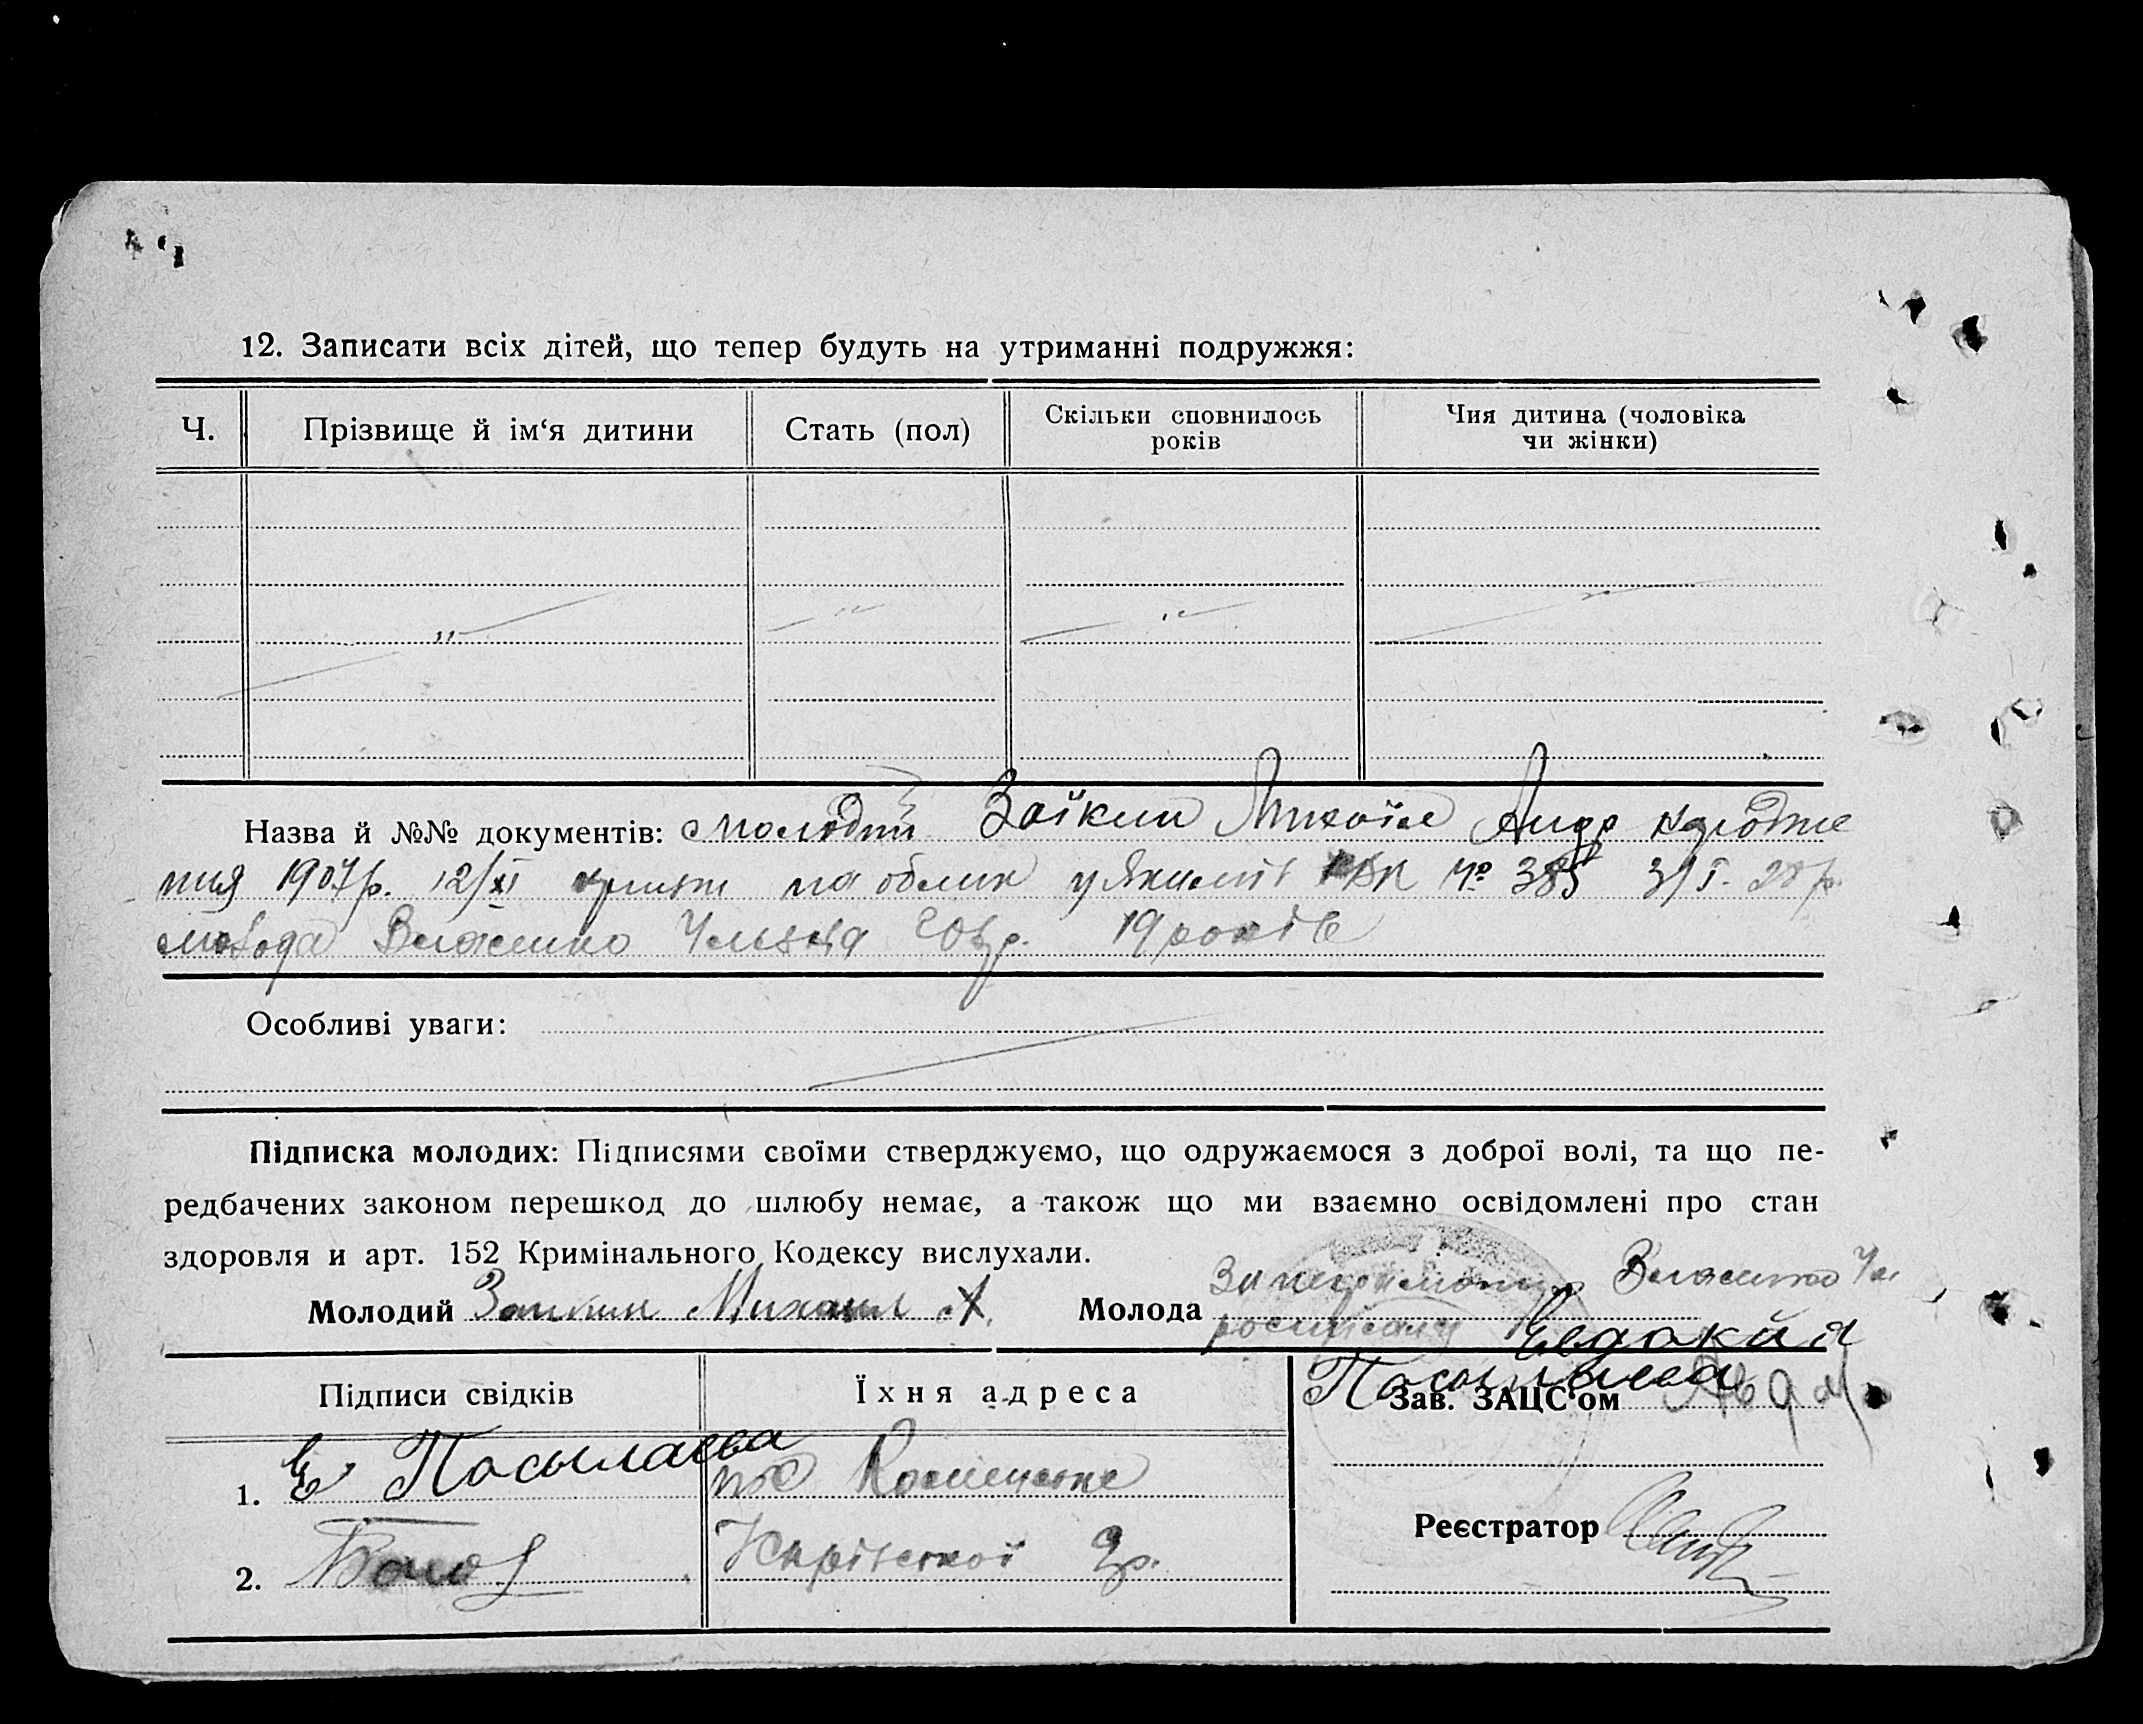 12. Записати всіх дітей, що тепер будуть на утриманні подружжя:
Ч. Прізвище й ім‘я дитини Стать (пол) Скільки сповнилось років Чия дитина (чоловіка чи жінки)
Назва й №№ документів: молодий Заїкин Михаїл Андр народже
ння 1907р. 12/XI на облик № 385 3/I. 28 р.
молода Власенко 19 років
Особливі уваги:
Підписка молодих: Підписями своїми стверджуємо, що одружаємося з доброї волі, та що пе-
редбачених законом перешкод до шлюбу немає, а також що ми взаємно освідомлені про стан
здоровля и арт. 152 Кримінального Кодексу вислухали.
Молодий Заикин Михаил А. Молода За неграмотну Власенко
росписалась Евдокия
Посылаева
Підписи свідків Їхня адреса Зав. ЗАЦС‘ом
1. Е Посылаева
2.
Реєстратор